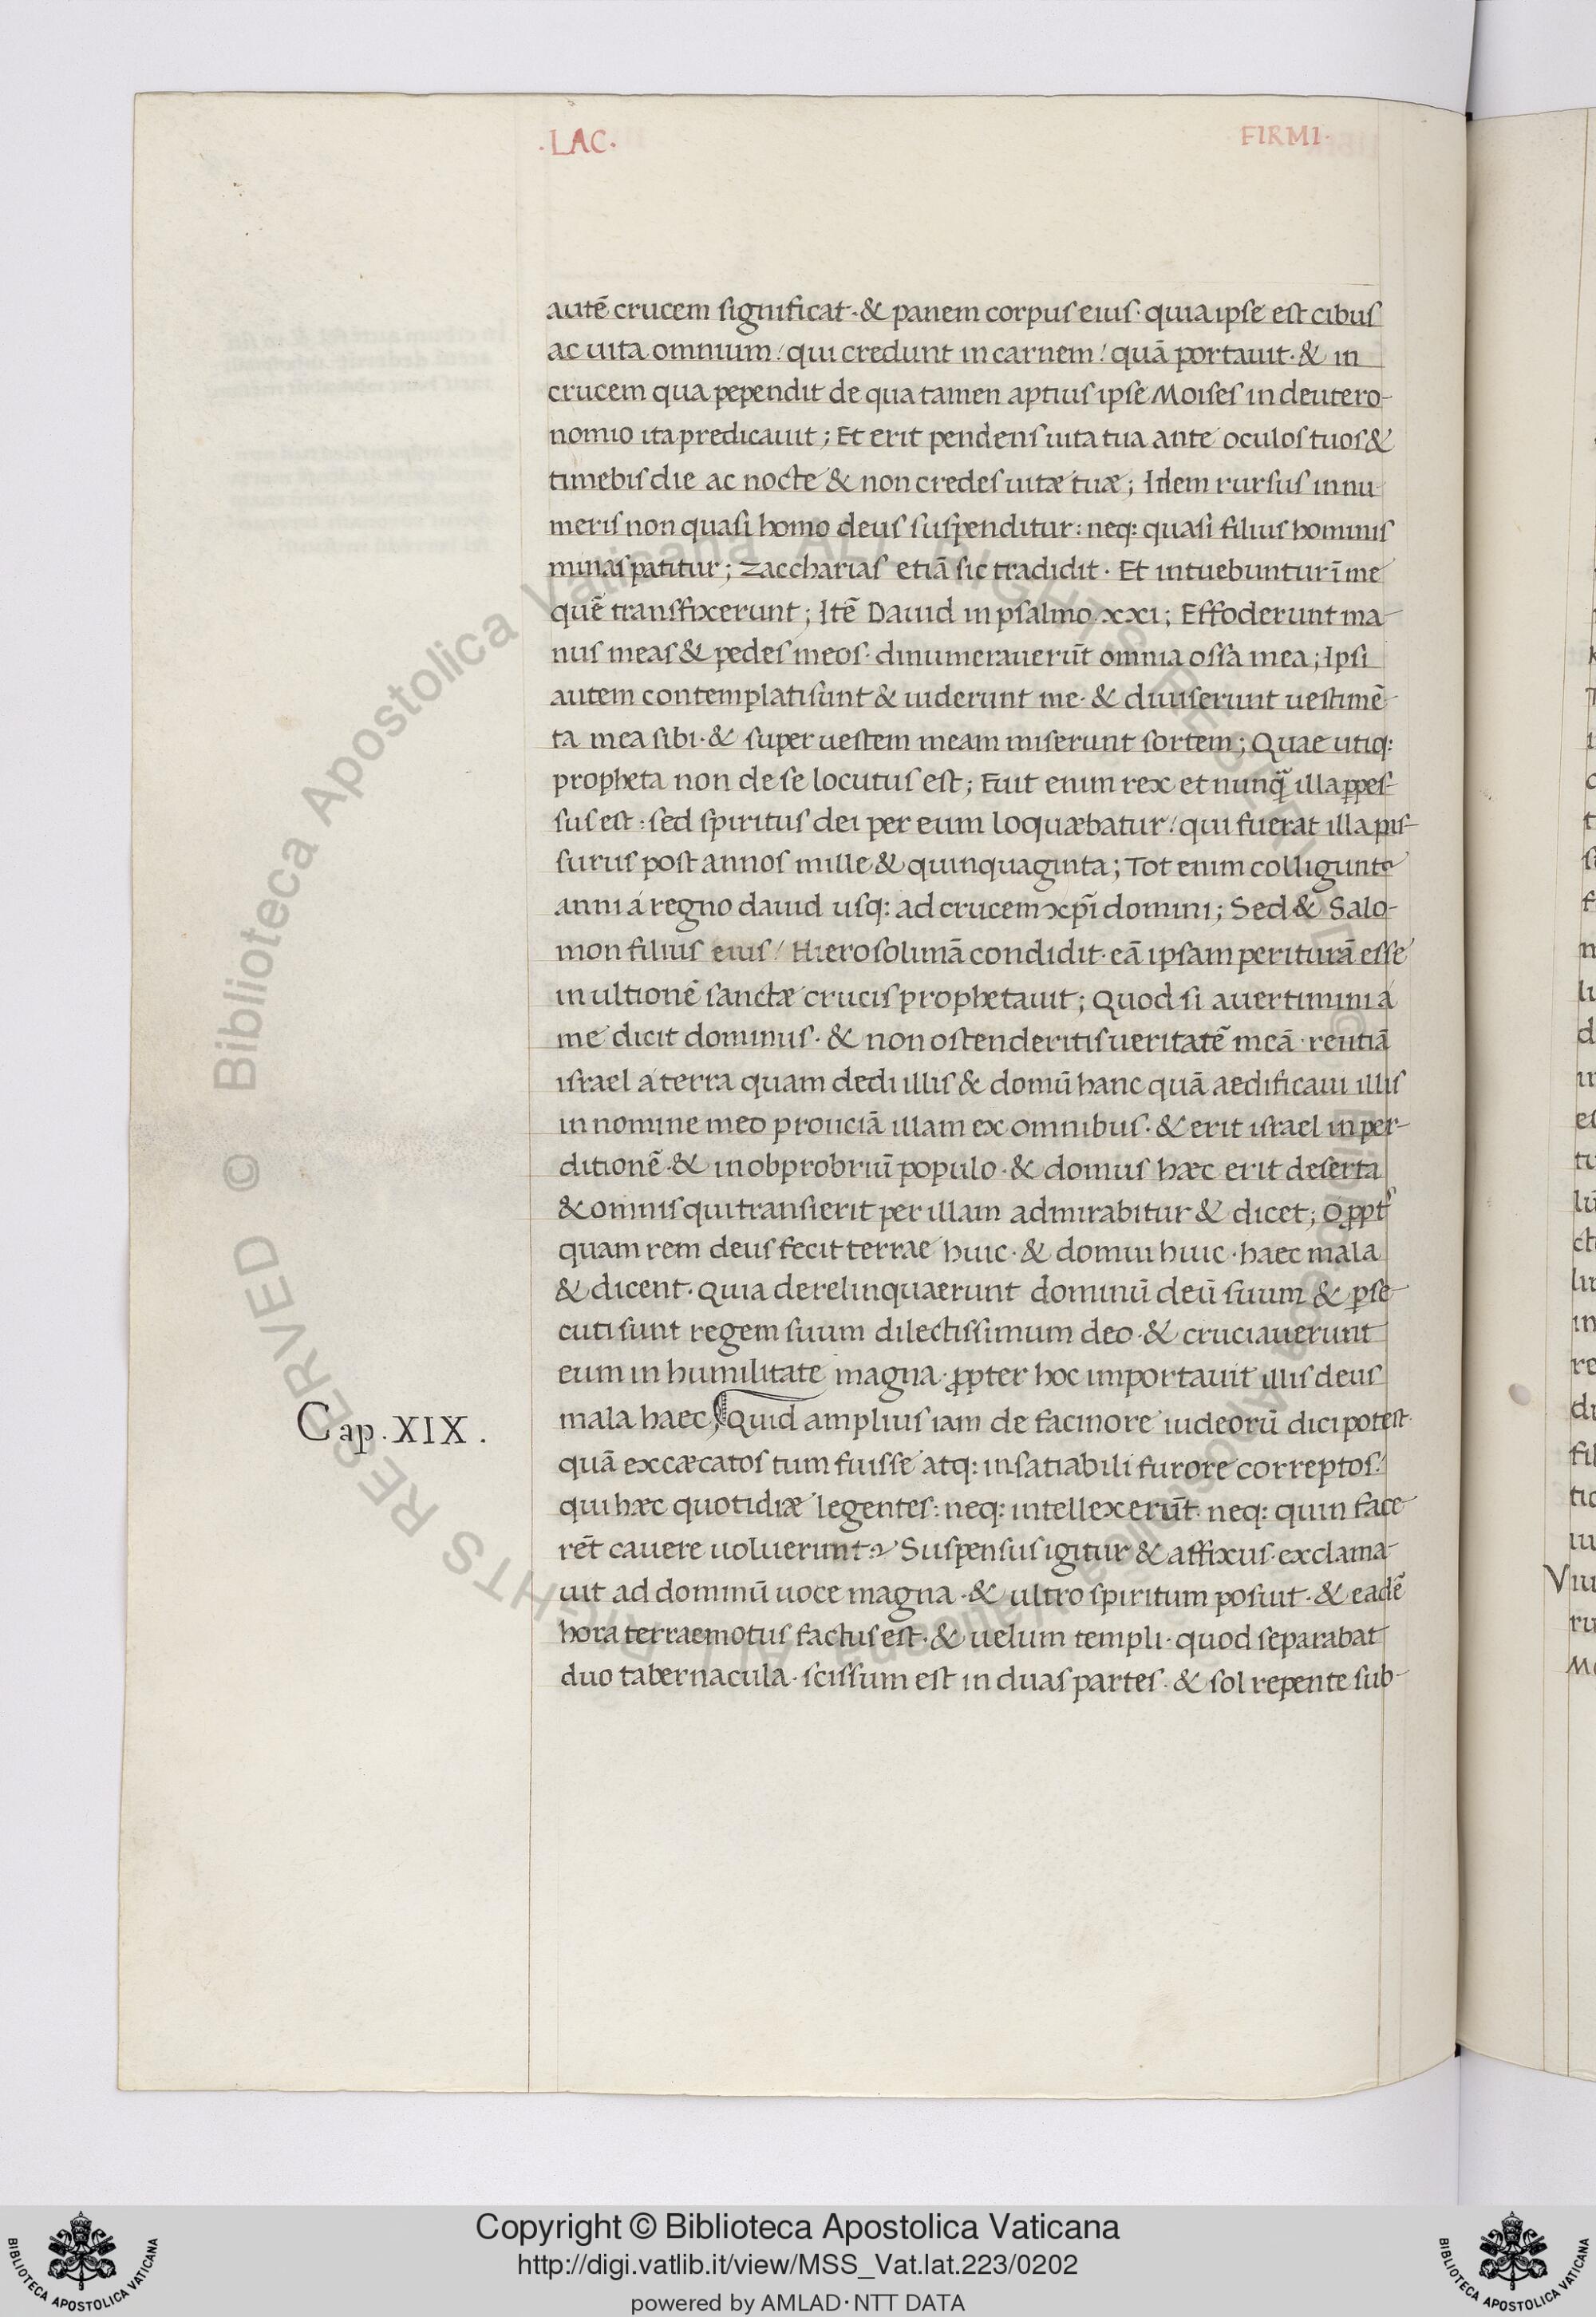 .LAC. FIRMI.
autē crucem significat·& panem corpus eius· quia ipse est cibus
ac uita omnium/ qui credunt in carnem/ quā portauit·& in
crucem qua pependit de qua tamen aptius ipse Moises in deutero-
nomio ita predicauit; Et erit pendens uita tua ante oculos tuos &
timebis die ac nocte & non credes uitæ tuæ; Idem rursus in nu-
meris non quasi homo deus suspenditur: neq: quasi filius hominis
minas patitur; Zaccharias etiā sic tradidit· Et intuebuntur ī me
quē transfixerunt; Itē Dauid in psalmo·xxi; Effoderunt ma-
nus meas & pedes meos· dinumerauerūt omnia ossa mea; Ipsi
autem contemplati sunt & uiderunt me·& diuiserunt uestimē-
ta mea sibi·& super uestem meam miserunt sortem; Quae utiq:
propheta non de se locutus est; Fuit enim rex et nunq̄ illa ꝑpes-
sus est: sed spiritus dei per eum loquæbatur/ qui fuerat illa pas-
surus post annos mille & quinquaginta; Tot enim colligunt᷑
anni á regno dauid usq: ad crucem xp̄i domini; Sed & Salo-
mon filius eius/ Hierosolimā condidit· eā ipsam periturā esse
in ultionē sanctæ crucis prophetauit; Quod si auertimini á
me dicit dominus·& non ostenderitis ueritatē meā· reiitiā
israel á terra quam dedi illis & domū hanc quā aedificaui illis
in nomine meo proiiciā illam ex omnibus·& erit israel in per-
ditionē·& in obprobriū populo·& domus hæc erit deserta
& omnis qui transierit per illam admirabitur & dicet; ꝓpt᷑
quam rem deus fecit terrae huic·& domui huic· haec mala
& dicent· Quia derelinquaerunt dominū deū suum & ꝑse-
cuti sunt regem suum dilectissimum deo·& cruciauerunt
eum in humilitate magna· ꝓpter hoc importauit illis deus
mala haec; Quid amplius iam de facinore iudeorū dici potest·
Cap. XIX.
quā excæcatos tum fuisse atq: insatiabili furore correptos/
qui hæc quotidiæ legentes: neq: intellexerūt· neq: quin face-
rēt cauere uoluerunt? Suspensus igitur & affixus· exclama-
uit ad dominū uoce magna·& ultro spiritum posuit·& eadē
hora terraemotus factus est·& uelum templi· quod separabat
duo tabernacula· scissum est in duas partes·& sol repente sub-
Copyright © Biblioteca Apostolica Vaticana
http://digi.vatlib.it/view/MSS_Vat.lat.223/0202
powered by AMLAD·NTT DATA
BIBLIOTECA APOSTOLICA VATICANA
BIBLIOTECA APOSTOLICA VATICANA